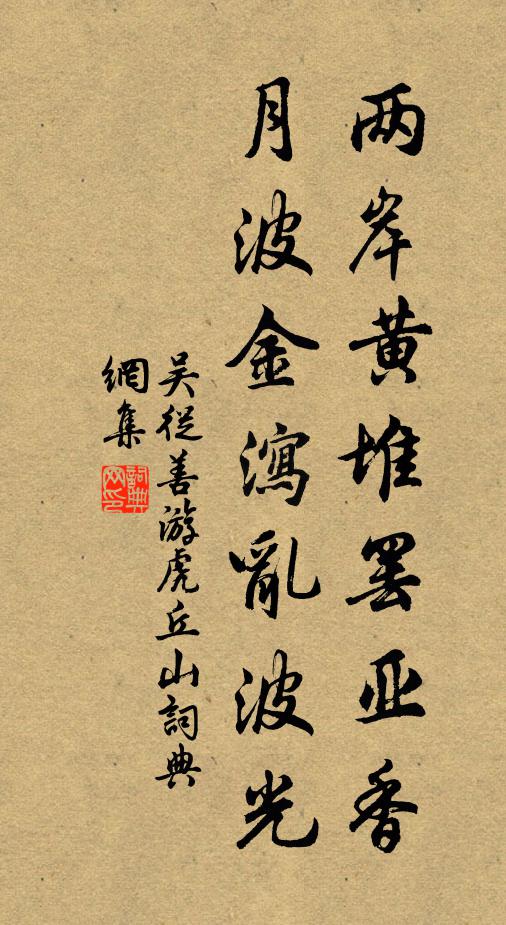 两岸黄堆罢亚香
月波金瀉亂波光
吴從善游虎丘山詞典
網集
詞典
网印